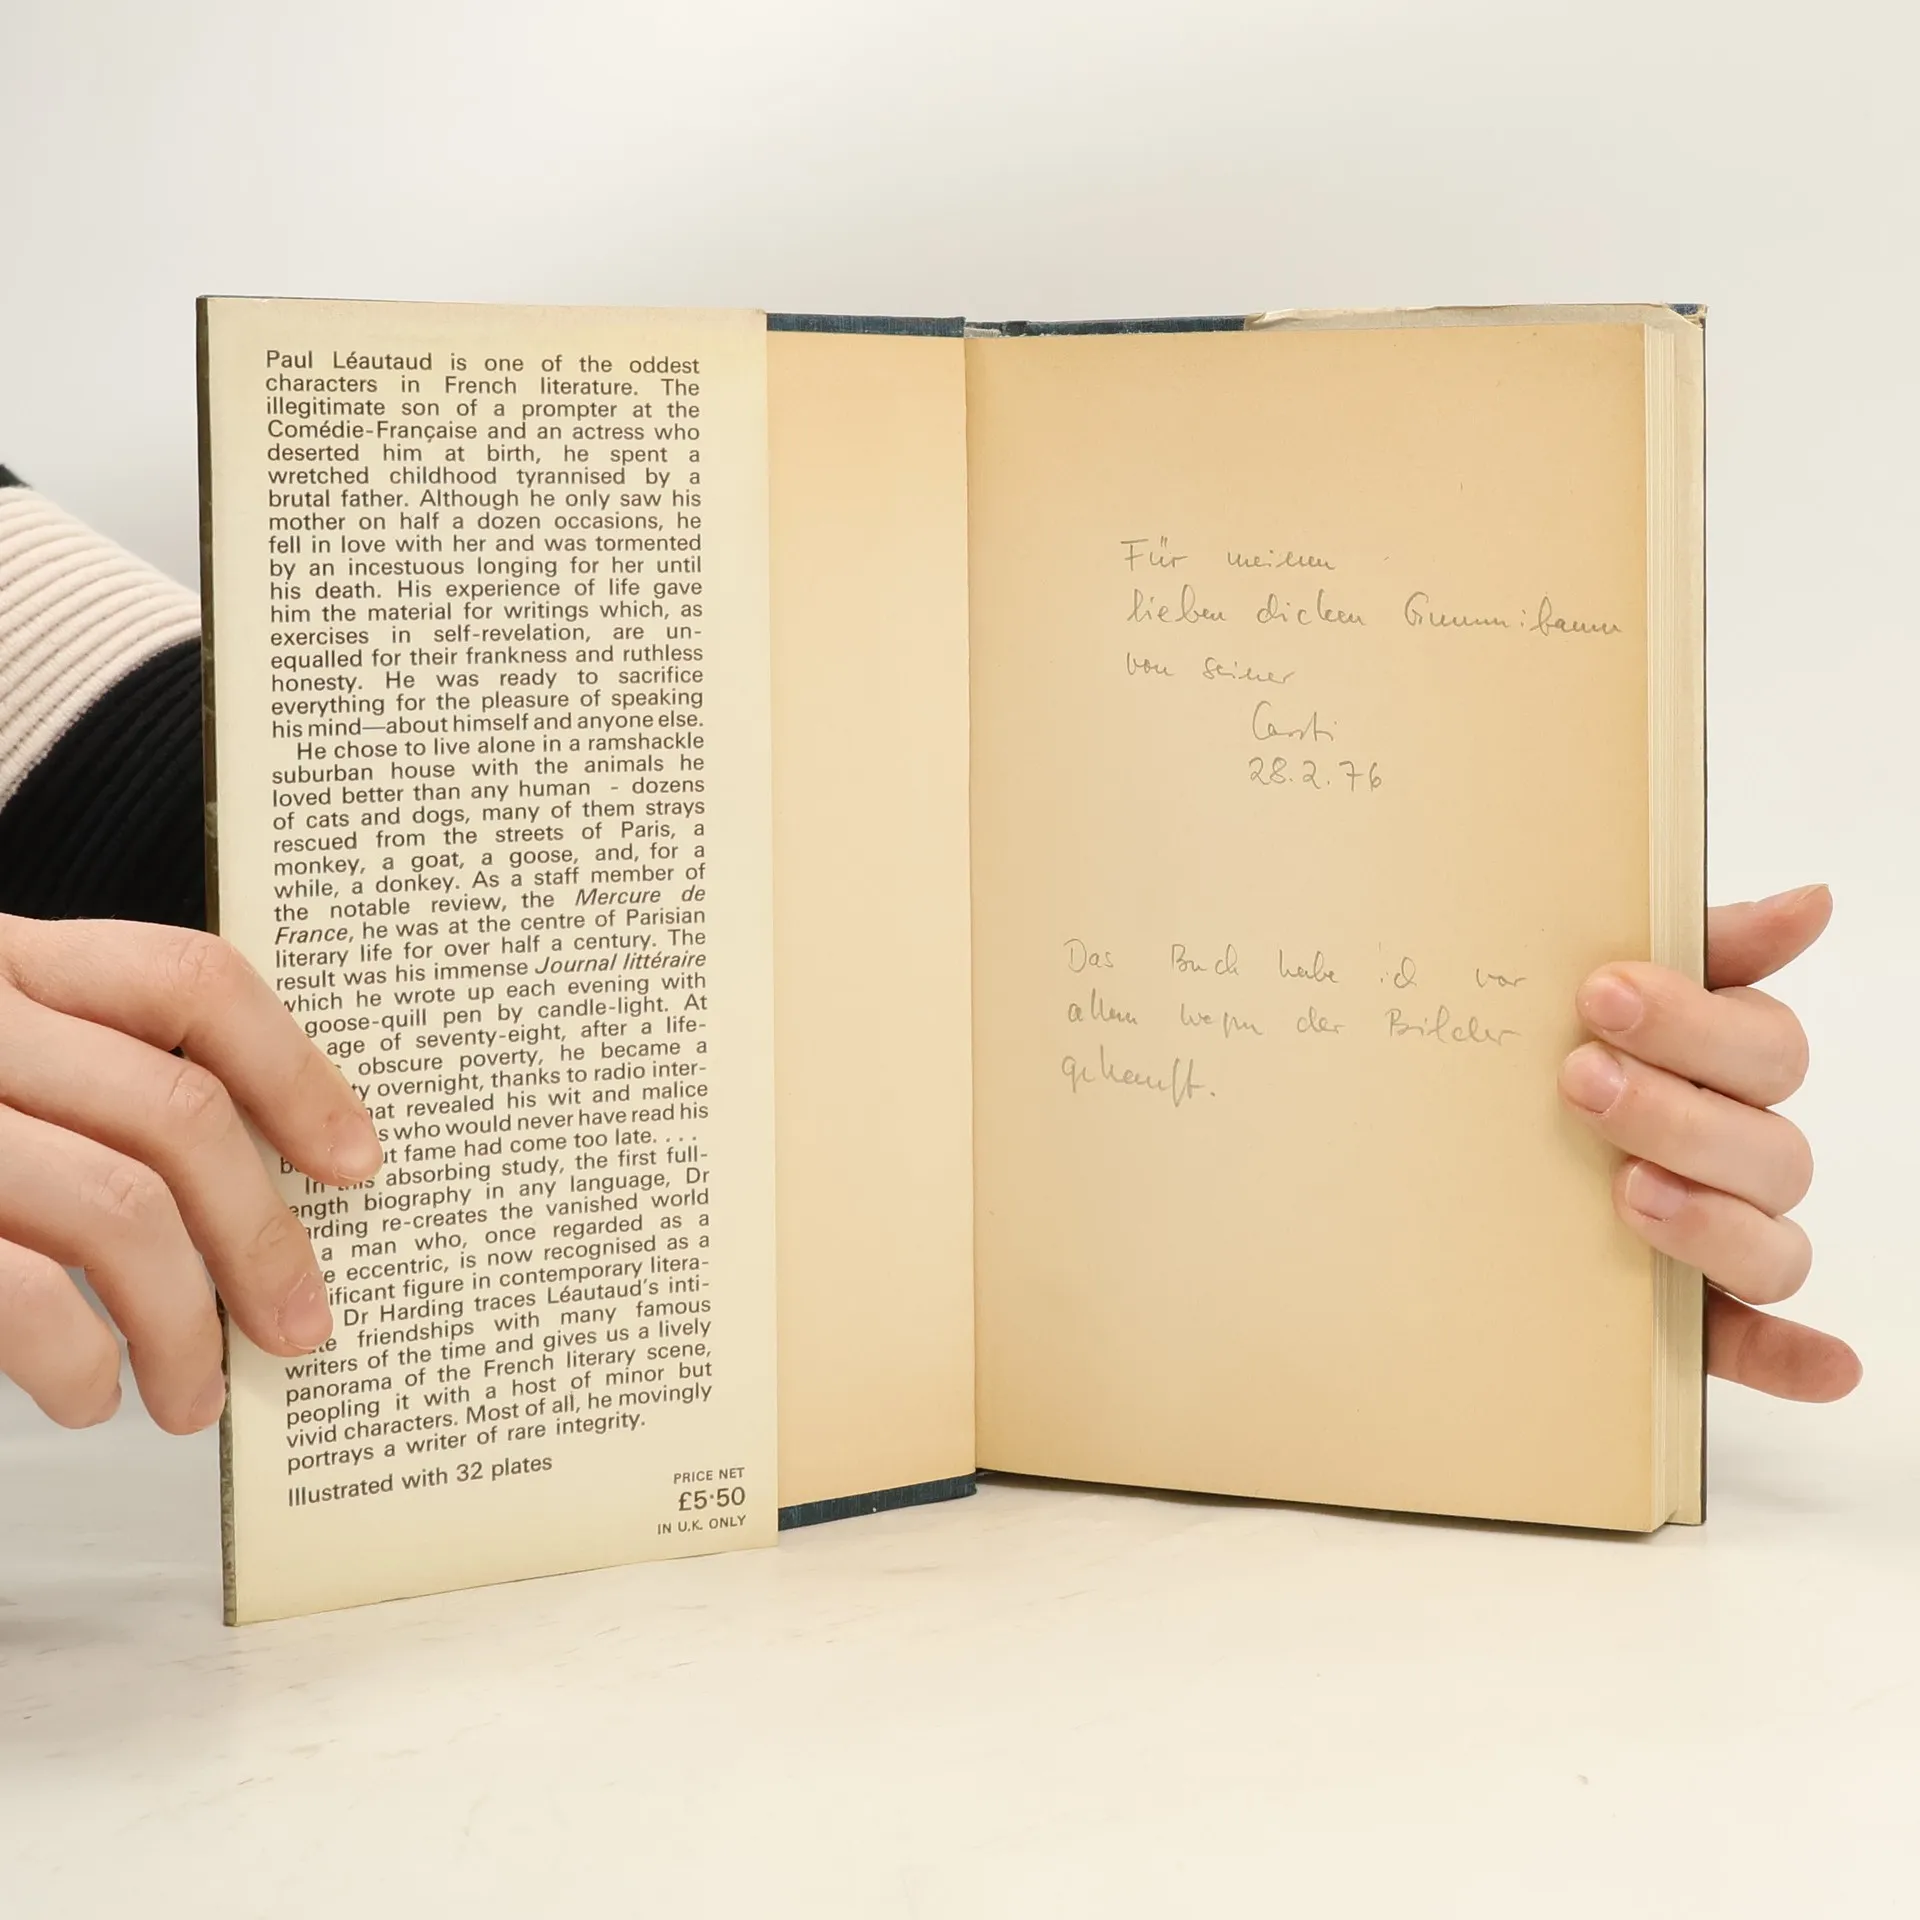 Paul Léautaud is one of the oddest
characters in French literature. The
illegitimate son of a prompter at the
Comédie-Française and an actress who
deserted him at birth, he spent a
wretched childhood tyrannised by a
brutal father. Although he only saw his
mother on half a dozen occasions, he
fell in love with her and was tormented
by an incestuous longing for her until
his death. His experience of life gave
him the material for writings which, as
exercises in self-revelation, are un-
equalled for their frankness and ruthless
honesty. He was ready to sacrifice
everything for the pleasure of speaking
his mind—about himself and anyone else.
He chose to live alone in a ramshackle
suburban house with the animals he
loved better than any human - dozens
of cats and dogs, many of them strays
rescued from the streets of Paris, a
monkey, a goat, a goose, and, for a
while, a donkey. As a staff member of
the notable review, the Mercure de
France, he was at the centre of Parisian
literary life for over half a century. The
result was his immense Journal littéraire
which he wrote up each evening with
goose-quill pen by candle-light. At
age of seventy-eight, after a life-
obscure poverty, he became a
overnight, thanks to radio inter-
revealed his wit and malice
who would never have read his
fame had come too late. . . .
In absorbing study, the first full-
biography in any language, Dr
re-creates the vanished world
a man who, once regarded as a
eccentric, is now recognised as a
figure in contemporary litera-
Dr Harding traces Léautaud's inti-
friendships with many famous
writers of the time and gives us a lively
panorama of the French literary scene,
peopling it with a host of minor but
vivid characters. Most of all, he movingly
portrays a writer of rare integrity.
Illustrated with 32 plates
PRICE NET
£5·50
IN U.K. ONLY
Für meinen
lieben dicken Gummibaum
von seiner
28.2.76
Das Buch habe ich vor
allem wegen der Bilder
gekauft.